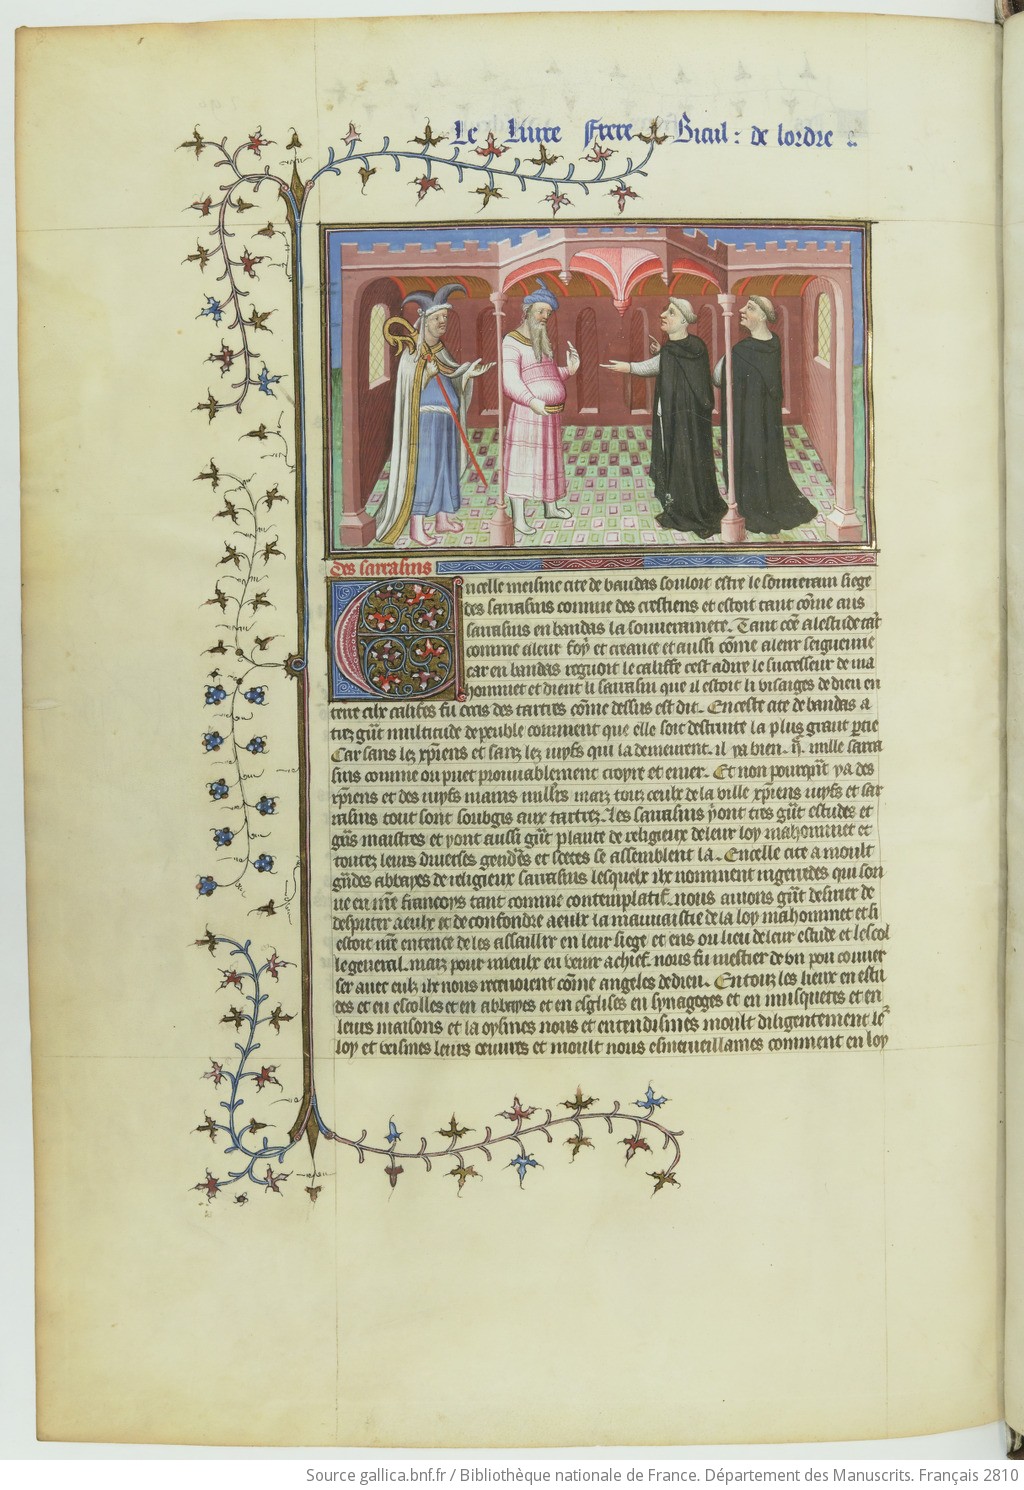 Le liure frere Bicul : de lordre
des sarrasins
Encelle meisme cite de baudas souloit estre le souuerain siege
des sarrasins comme des crestiens et estoit tant cõme aus
sarrasins en baudas la souuerainete. Tant cõe a lestude
comme a leur foy et creance et aussi cõme a leur seigneurie
car en baudas regnoit le califfe cest adire le successeur de ma
hommet et dient li sarrasin que il estoit li visaiges de dieu en
terre cilz califes fu occis des tartres cõme dessus est dit. En ceste cite de baudas a
tres gñt multitude de peuble comment que elle soit destruite la plus grant ptie
Car sans lez xpiens et sanz lez iuyfs qui la demeurent. il ya bien. mille sarra
sins comme on puet prouuablement croyre et  Et non pourqñt ya des
xpiens et des iuyfs mains milles maiz touz ceulx de la ville xpiens iuyfs et sar
rasins tout sont soubgis aux tartrez. les sarrasins y ont tres gñt estudes et
gñs maistres et y ont aussi gñt plante de religieux de leur loy mahommet et
toutez leurs diuerses gendres et sectes se assemblent la. En celle cite a moult
gñdes abbayes de religieux sarrasins lesquelx ilz nomment qui son
ne en nre francoys tant comme contemplatif. nous auions gñt desirier de
desputer a eulx et de confondre a eulx la mauuaistie de la loy mahommet et si
estoit nre entente de les assaillir en leur siege et ens ou lieu de leur estude et lescol
le general. maiz pour mieulx en venir a chief. nous fu mestier de vn pou conuer
ser auec eulz ilz nous receuoient cõme angeles de dieu. En touz les lieux en estu
des et en escolles et en abbayes et en esglises en synagoges et en musquetes et en
leurs maisons et la oysmes nous et entendismes moult diligentement le
loy et veismes leurs oeuures et moult nous esmerueillames comment en loy
Source gallica.bnf.fr / Bibliothèque nationale de France. Département des Manuscrits. Français 2810